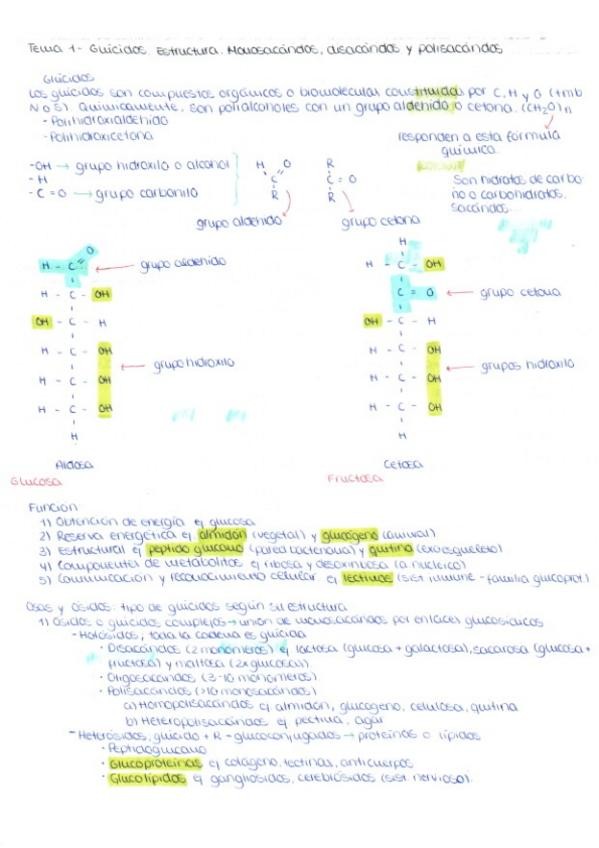 Tema 1- Glúcidos. Estructura. Monosacáridos, disacáridos y polisacáridos
Glúcidos
Los glúcidos son compuestos orgánicos o biomoleculas constituidas por C, H y O (tmb
N o S). Químicamente, son polialcoholes con un grupo aldehído o cetona. (CH2O)n
- Polihidroxialdehído
- Polihidroxicetona
responden a esta fórmula
química.
-OH → grupo hidroxilo o alcohol
- H
- C = O → grupo carbonilo
H O
C
R
R
C = O
R
Son hidratos de carbo-
no o carbohidratos,
sacáridos...
grupo aldehído
grupo cetona
O
H - C ← grupo aldehído
H - C - OH
OH - C - H
H - C - OH
H - C - OH ← grupo hidroxilo
H - C - OH
H
Aldosa
Glucosa
H
H - C - OH
C = O ← grupo cetona
OH - C - H
H - C - OH
H - C - OH ← grupos hidroxilo
H - C - OH
H
Cetosa
Fructosa
Función
1) Obtención de energía ej glucosa
2) Reserva energética ej almidón (vegetal) y glucógeno (animal)
3) Estructural ej peptido glucano (pared bacteriana) y quitina (exoesqueleto)
4) Componente de metabolitos ej ribosa y desoxirribosa (a nucleico)
5) Comunicación y reconocimiento celular ej lectinas (sist. inmune - familia glucoprot.)
Osas y ósidos: tipo de glúcidos según su estructura
1) Ósidos o glúcidos complejos → unión de monosacáridos por enlaces glucosídicos
- Holósidos, toda la cadena es glúcida
· Disacáridos (2 monómeros) ej lactosa (glucosa + galactosa), sacarosa (glucosa +
fructosa) y maltosa (2x glucosa)
· Oligosacáridos (3-10 monómeros)
· Polisacáridos (>10 monosacáridos)
a) Homopolisacáridos ej almidón, glucógeno, celulosa, quitina
b) Heteropolisacáridos ej pectina, agar
- Heterósidos, glúcido + R - glucoconjugados → proteínas o lípidos
· Peptidoglucano
· Glucoproteínas ej colágeno, lectinas, anticuerpos
· Glucolípidos ej gangliósidos, cerebrósidos (sist. nervioso).